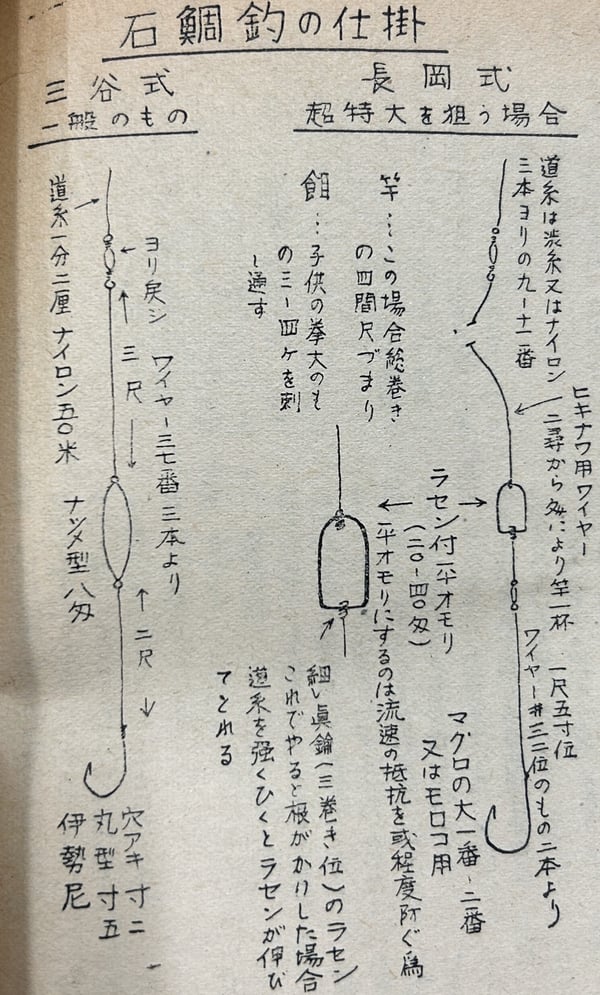 石鯛釣の仕掛
長岡式
超特大を狙う場合
道糸は渋糸又はナイロン
三本ヨリの九ー十一番
ヒキナワ用ワイヤー
二尋から匁により竿一杯
一尺五寸位
ワイヤー#三二位のもの二本より
マグロの大一番ー二番
又はモロコ用
ラセン付一平オモリ
(二〇ー四〇匁)
平オモリにするのは流速の抵抗を或程度防ぐ為
竿…この場合総巻き
の四間尺づまり
餌…子供の拳大のも
の三ー四ケを刺
し通す
細い眞鍮(三巻き位)のラセン
これでやると根がかりした場合
道糸を強くひくとラセンが伸び
てとれる
三谷式
一般のもの
ヨリ戻シ
ワイヤー三七番 三本より
三尺
二尺
道糸一分二厘 ナイロン五〇米
ナツメ型 八匁
穴アキ寸二
丸型寸五
伊勢尼